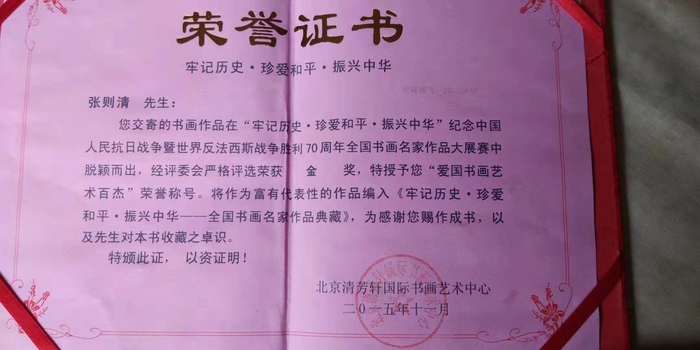 荣誉证书
牢记历史·珍爱和平·振兴中华
张则清 先生：
您交寄的书画作品在“牢记历史·珍爱和平·振兴中华”纪念中国
人民抗日战争暨世界反法西斯战争胜利70周年全国书画名家作品大展赛中
脱颖而出，经评委会严格评选荣获 金 奖，特授予您“爱国书画艺
术百杰”荣誉称号。将作为富有代表性的作品编入《牢记历史·珍爱
和平·振兴中华——全国书画名家作品典藏》，为感谢您赐作成书，以
及先生对本书收藏之卓识。
特颁此证，以资证明！
北京清芳轩国际书画艺术中心
二〇一五年十一月